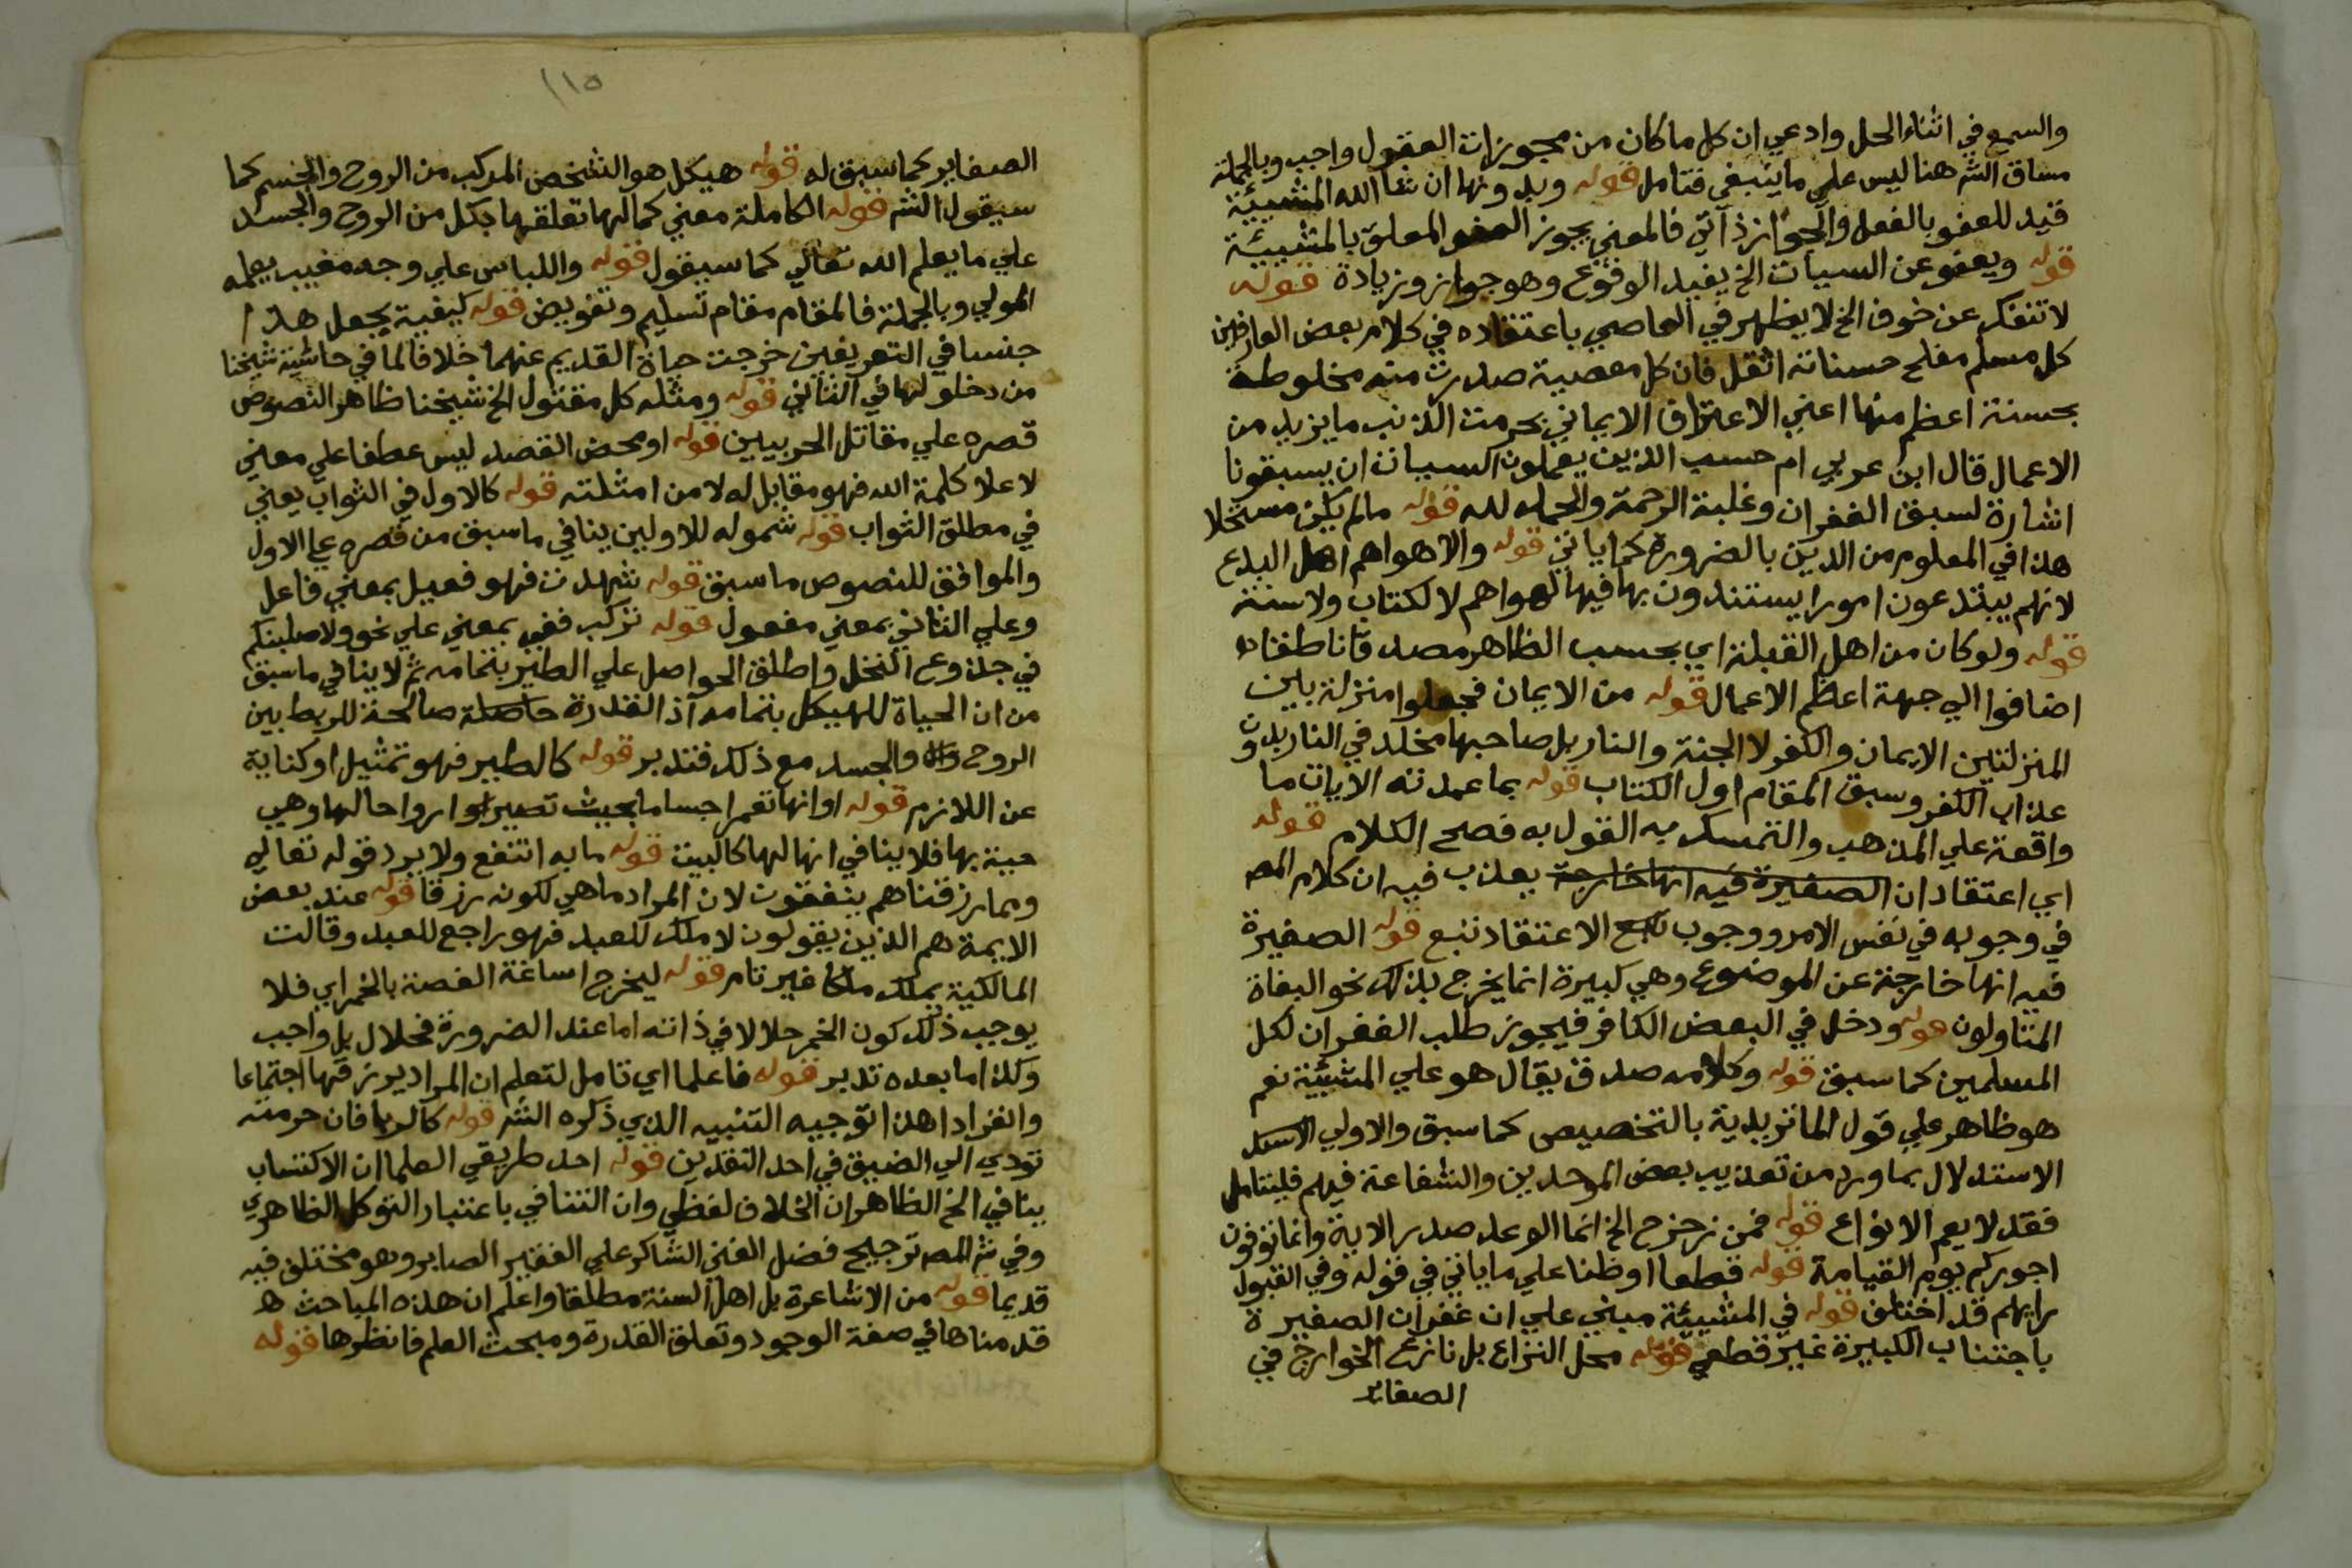 والسمع في اثناء الحل وادعي ان كل ما كان من مجوزات العقول واجب وبالجملة
مساق الشر هنا ليس علي ما ينبغي فتامل قوله وبدونها ان شا الله المشيئة
قيد للعفو بالفعل والجواز ذاتي فالمعني يجوز العفو المعلق بالمشيئة
قوله ويعفو عن السيات الخ يفيد الوقوع وهو جواز وزيادة قوله
لا تنفك عن خوف الخ لا يظهر في العاصي باعتقاده في كلام بعض العارفين
كل مسلم مفلح حسناته اثقل فان كل معصية صدرت منه مخلوطة
بحسنة اعظم منها اعني الاعتراف الايماني بحرمت الذنب ما يزيد من
الاعمال قال ابن عربي ام حسب الذين يعملون السيات ان يسبقونا
اشارة لسبق الغفران وغلبة الرحمة والحمد لله قوله ما لم يكن مستحلا
هذا في المعلوم من الدين بالضرورة كما ياتي قوله والاهوا هم اهل البدع
لانهم يبتدعون امورا يستندون بها فيها لهواهم لا لكتاب ولا سنة
قوله ولو كان من اهل القبلة اي بحسب الظاهر مصدقا ناطقا
اضافوا الي جهة اعظم الاعمال قوله من الايمان فجعلوا منزلة بين
المنزلتين الايمان والكفر لا الجنة والنار بل صاحبها مخلد في النار بدون
عذاب الكفر وسبق المقام اول الكتاب قوله بما عمدته الايات ما
واقعة علي المذهب والتمسك به القول به فصح الكلام قوله
اي اعتقاد ان الصغيرة فيه انها خارجة يعذب فيه ان كلام المص
في وجوبه في نفس الامر ووجوب الاعتقاد تبع قوله الصغيرة
فيه انها خارجة عن الموضوع وهي كبيرة انما يخرج بذلك نحو البغاة
المتاولون قوله ودخل في البعض الكافر فيجوز طلب الغفران لكل
المسلمين كما سبق قوله وكلامه صدق يقال هو علي المشيئة نعم
هو ظاهر علي قول الماتريدية بالتخصيص كما سبق والاولي
الاستدلال بما ورد من تعذيب بعض الموحدين والشفاعة فيهم فليتامل
فقد لا يعم الانواع قوله فمن زحزح الخ انما الوعد صدر الاية وانما توفون
اجوركم يوم القيامة قوله قطعا او ظنا علي ما ياتي في قوله وفي القبول
رايهم قد اختلف قوله في المشيئة مبني علي ان غفران الصغيرة
باجتناب الكبيرة غير قطعي قوله محل النزاع بل نازع الخوارج في
الصغائر
١١٥
الصغاير كما سبق له قوله هيكل هو الشخص المركب من الروح والجسم كما
سيقول الشر قوله الكاملة معني كمالها تعلقها بكل من الروح والجسد
علي ما يعلم الله تعالي كما سيقول قوله واللباس علي وجه مغيب يعلمه
المولي وبالجملة فالمقام مقام تسليم وتفويض قوله كيفية يجعل هذا
جنسا في التعريفين خرجت حياة القديم عنهما خلافا لما في حاشية شيخنا
من دخولها في الثاني قوله ومثله كل مقتول الخ شيخنا ظاهر النصوص
قصره علي مقاتل الحربيين قوله او محض القصد ليس عطفا علي معني
لاعلا كلمة الله فهو مقابل له لا من امثلته قوله كالاول في الثواب يعني
في مطلق الثواب قوله شموله للاولين ينافي ما سبق من قصره علي الاول
والموافق للنصوص ما سبق قوله شهدت فهو فعيل بمعني فاعل
وعلي الثاني بمعني مفعول قوله تركب ففي بمعني علي نحو ولاصلبنكم
في جذوع النخل واطلق الحواصل علي الطير بتمامه ثم لا ينافي ما سبق
من ان الحياة للهيكل بتمامه اذ القدرة حاصلة صالحة للربط بين
الروح والجسد مع ذلك فتدبر قوله كالطير فهو تمثيل او كناية
عن اللازم قوله او انها تعمر اجساما بحيث تصير ارواحا لها وهي
حية بها فلا ينافي انها لها كالبيت قوله ما به انتفع ولا يرد قوله تعالي
ومما رزقناهم ينفقون لان المراد ما هي لكونه رزقا قوله عند بعض
الايمة هم الذين يقولون لا ملك للعبد فهو راجع للعبد وقالت
المالكية يملك ملكا غير تام قوله ليخرج اساغة الغصة بالخمر اي فلا
يوجب ذلك كون الخمر حلالا في ذاته اما عند الضرورة فحلال بل واجب
وكذا ما بعده تدبر قوله فاعلما اي تامل لتعلم ان المراد يرزقها اجتماعا
وانفرادا هذا توجيه التنبيه الذي ذكره الشر قوله كالربا فان حرمته
تودي الي الضيق في احد النقدين قوله احد طريقي العلما ان الاكتساب
ينافي الخ الظاهر ان الخلاف لفظي وان التنافي باعتبار التوكل الظاهري
وفي شر المص ترجيح فضل الغني الشاكر علي الفقير الصابر وهو مختلف فيه
قديما قوله من الاشاعرة بل اهل السنة مطلقا واعلم ان هذه المباحث
قدمناها في صفة الوجود وتعلق القدرة ومبحث العلم فانظرها قوله